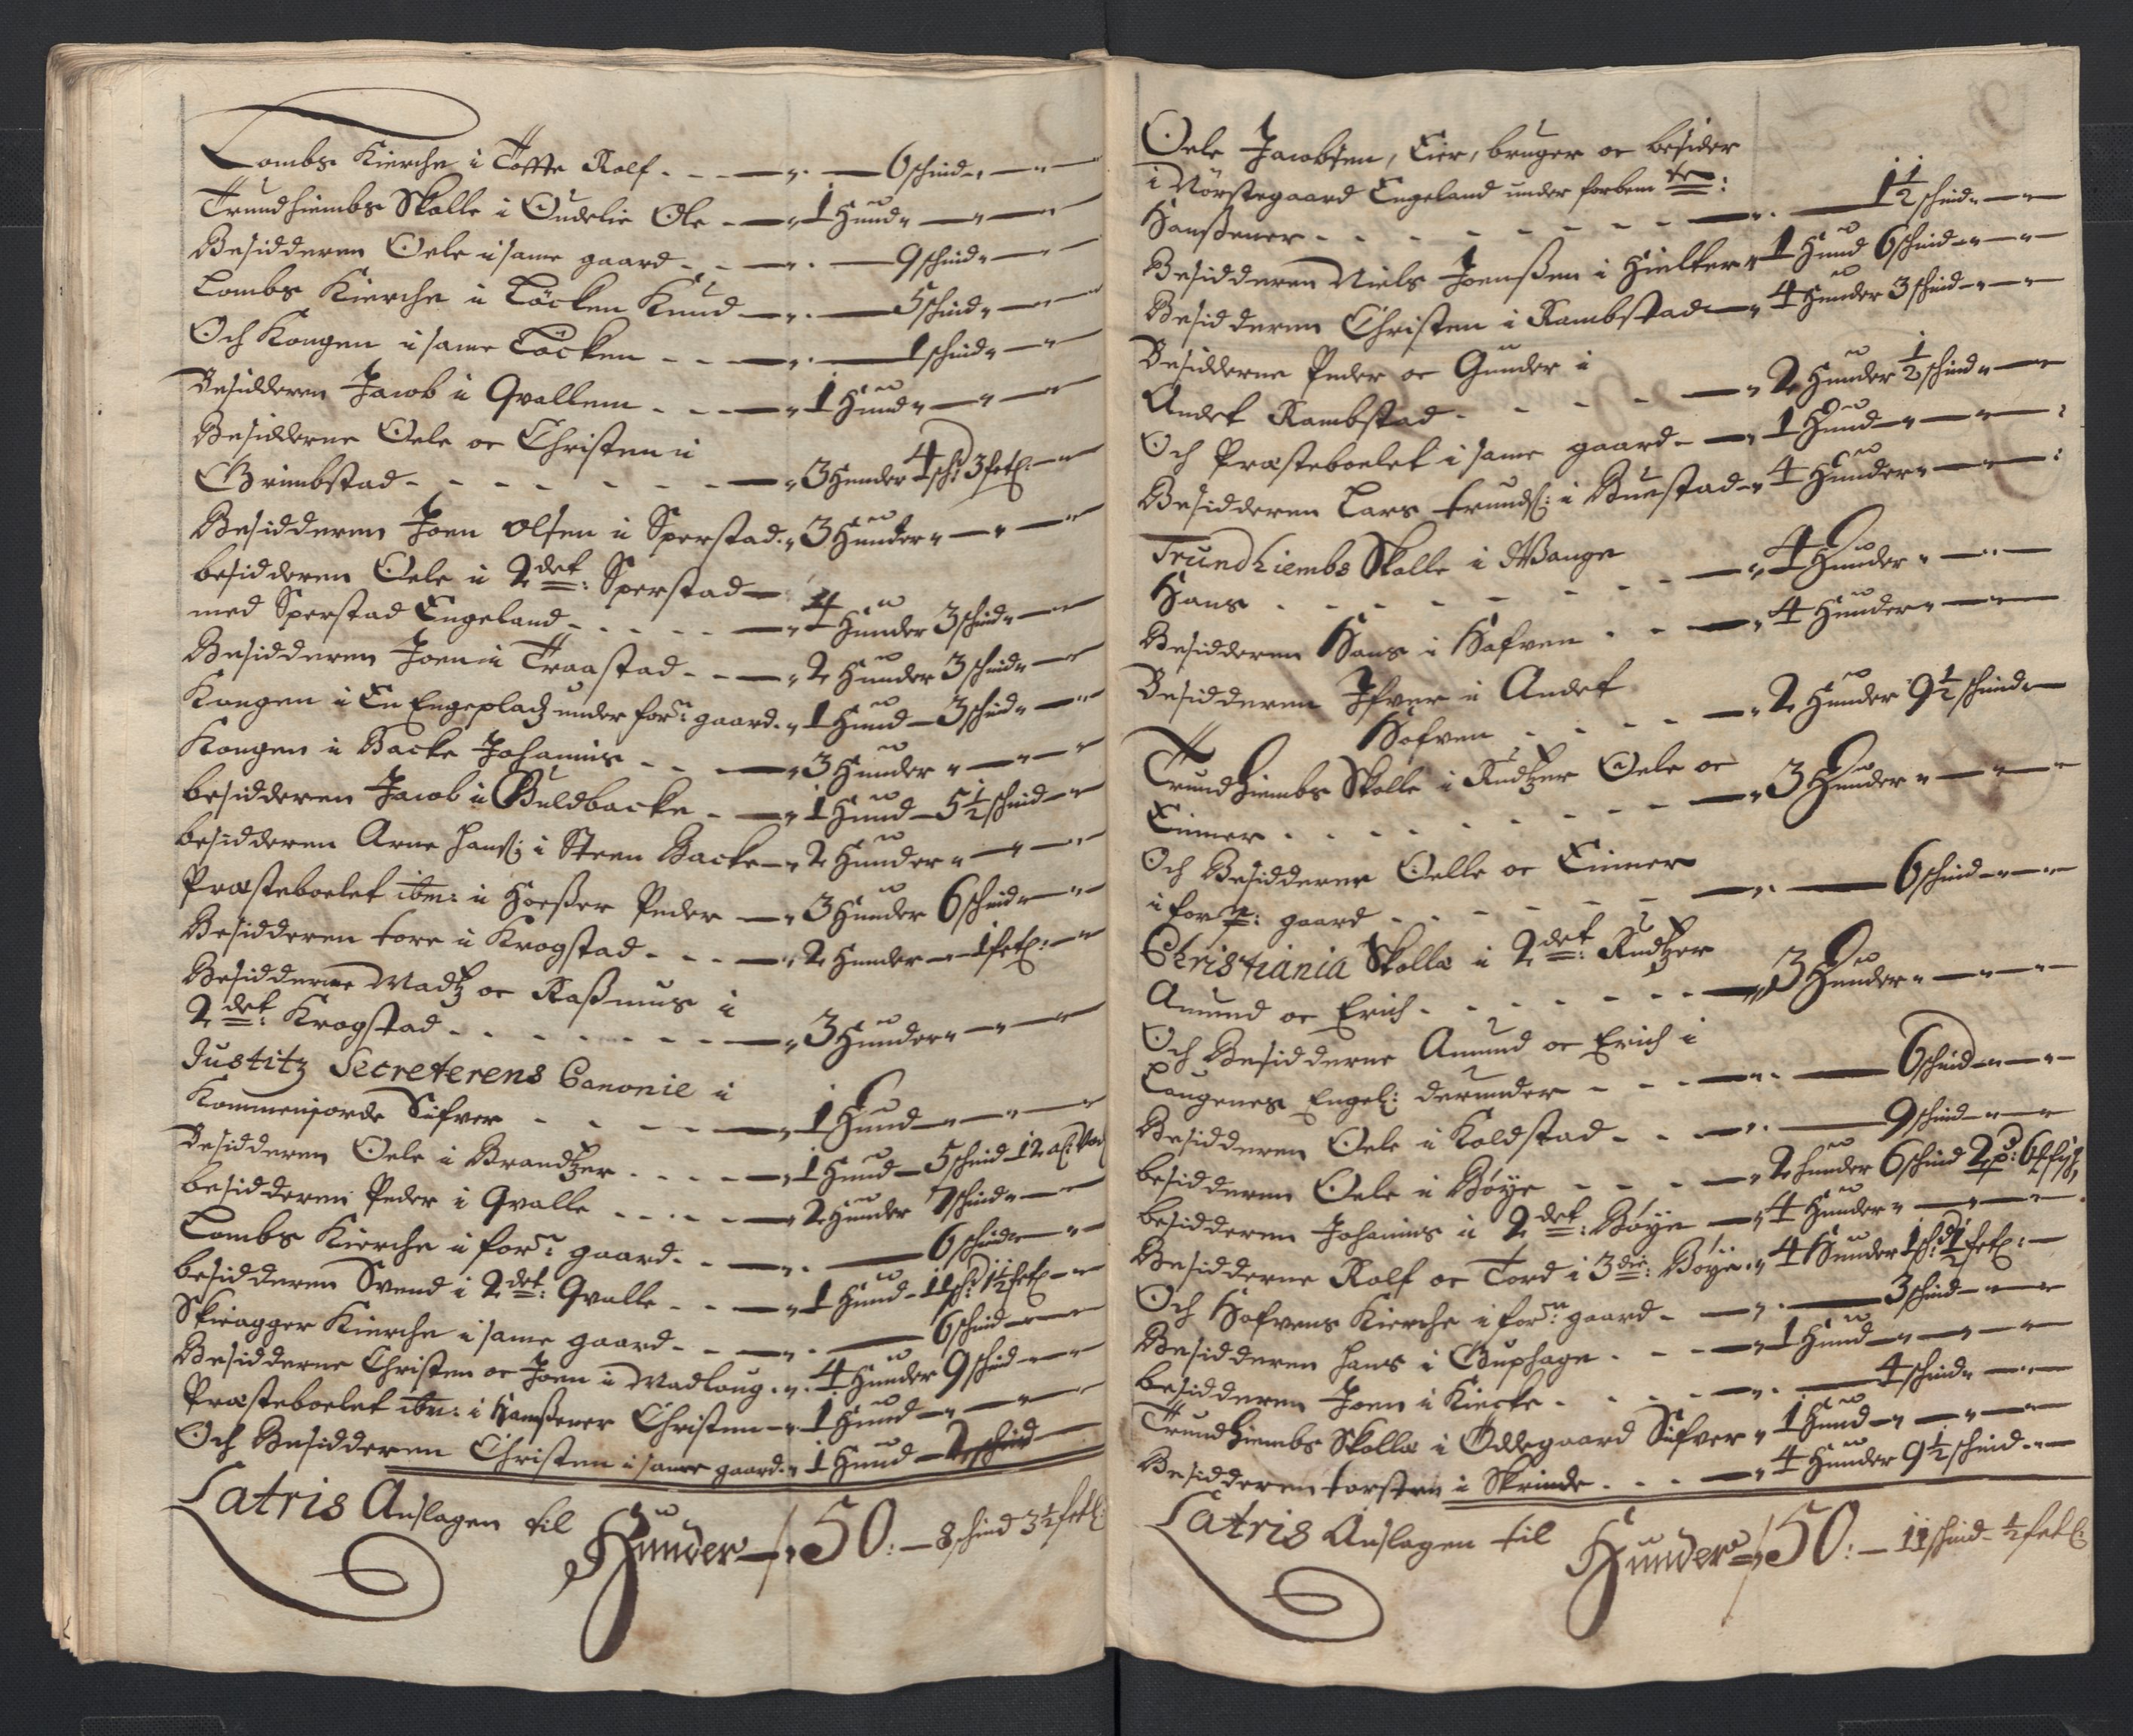 Lombs Kierche i Toffte Rolf - - - 6 schind
Trundhiembs Skolle i Oudelie Ole - 1 Hund
Besidderen Oele i same gaard - - 9 schind
Lombs Kierche i Löcken Knud - 5 schind
Och Kongen i same Löcken - - - 1 schind
Besidderen Jacob i Qvallem - - - 1 Hund
Besidderne Oele oc Christen i
Grimbstad - - - - - - - 3 Hunder 4 sch: 3 fetl:
Besidderen Joen Olsen i Sperstad 3 Hunder
besidderen Oele i 2det: Sperstad
med Sperstad Engeland - - - - - 4 Hunder 3 schind
Besidderen Joen i Traastad - - - 2 Hunder 3 schind
Kongen i En Engepladz under forn: gaard 1 Hund 3 schind
Kongen i Backe Johannis - - - 3 Hunder
besidderen Jacob i Guldbacke - 1 Hund 5½ schind
besidderen Arne hans: i Steen Backe 2 Hunder
Præsteboelet ibm: i Horßer Peder - 3 Hunder 6 schind
Besidderen tore i Krogstad - - - 2 Hunder 1 fetl:
Besidderne Madtz oc Raßmus i
2det: Krogstad - - - - - - - 3 Hunder
Justitz Secreterens Canonie i
Kommenjorde Sifver - - - - 1 Hund
Besidderen Oele i Brandtzer - - - - 1 Hund 5 schind 12 al:
besidderen Peder i Qvalle - - - - 2 Hunder 7 schind
Lombs Kierche i forn: gaard - - 6 schind
besidderen Svend i 2det: Qvalle - - 1 Hund 11 sch: 1½ fetl
Skieagger Kierche i same gaard - - 6 schind
Besidderne Christen oc Joen i Madloug - 4 Hunder 9 schind
Præsteboelet ibm: i Hamßener Christen - 1 Hund
Och Besidderen Christen i same gaard 1 Hund 2 schind
Latris Anslagen til Hunder 50: - 8 schind 3½ fetl:
Oele Jacobsen, Eier, bruger oc besider
i Nörstegaard Engeland under forbem te:
Hanßener - - - - - - - - 1½ schind
Besidderen Niels Joenßen i Hielter 1 Hund 6 schind
Besidderen Christen i Rambstad 4 Hunder 3 schind
Besidderne Peder oc Gunder i
Andet Rambstad - - - - - 2 Hunder ½ schind
Och Præsteboelet i same gaard - 1 Hund
Besidderen Lars trunds: i Buestad 4 Hunder
Trundhiembs Skolle i Wange
Hans - - - - - - - - 4 Hunder
Besidderen Hans i Hafven - - - 4 Hunder
Besidderen Ifver i Andet
Hofven - - - - 2 Hunder 9½ schind
Trundhiembs Skolle i Rudtzer Oele oc
Einner - - - - - - - - 3 Hunder
Och Besidderne Oelle oc Einner
i forn: gaard - - - - - - - 6 schind
Christiania Skolle i 2det: Rudtzer
Amund oc Erich - - - - - - 3 Hunder
Och Besidderne Amund oc Erich i
Laugenes Engel: derunder - - - 6 schind
Besidderen Oele i Koldstad - - - 9 schind
besidderen Oele i Böye - - - - 2 hunder 6 schind
besidderen Johannis i 2det: Böye - 4 Hunder
Besidderne Rolf oc Tord i 3die: Böye 4 Hunder 1 sch: ½ fetl:
Och Hofvens Kierche i forn: gaard - - 3 schind
Besidderen hans i Guphage - - - 1 Hund
besidderen Joen i Kircke - - - - 4 schind
Trundhiembs Skolle i Oddegaard Sifver 1 Hund
Besidderen torsten i Skrinde - - - 4 Hunder 9½ schind
Latris Anslagen til Hunder 50: - 11 schind ½ fetl: